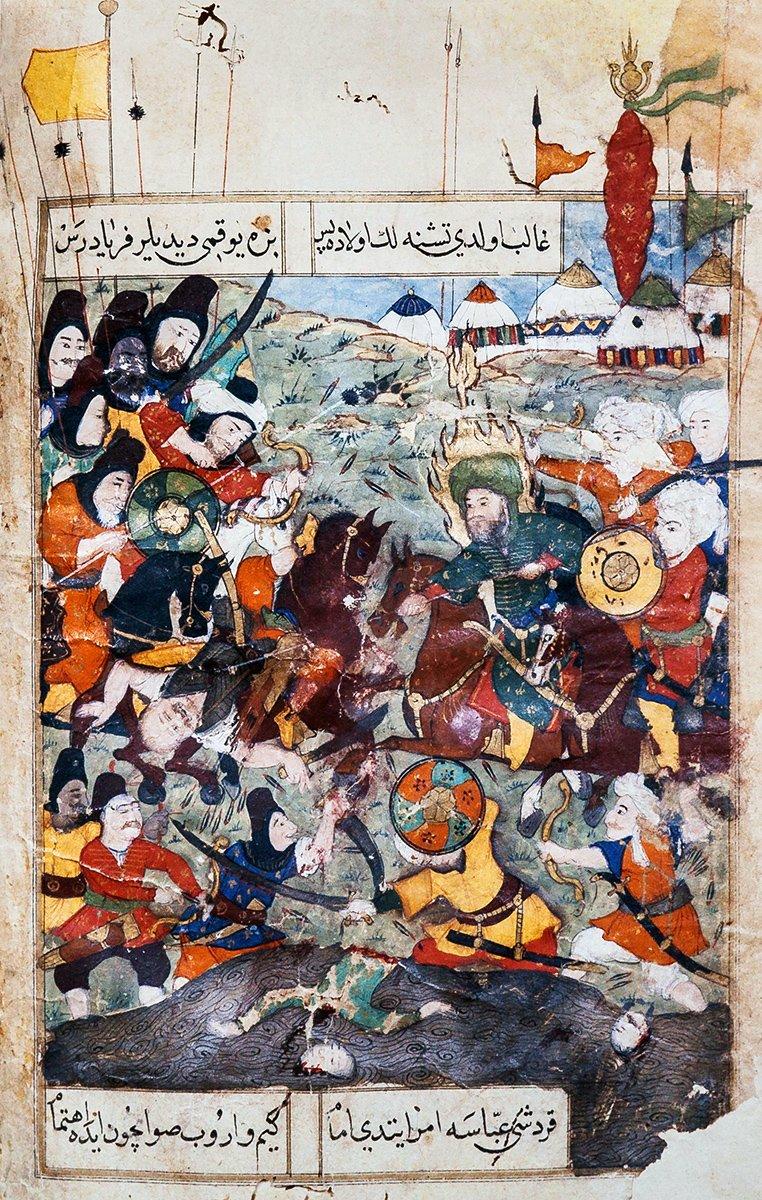 غالب اولدي تشنه لك اولاده پس
بزه يوقمي ديديلر فريادرس
قردشي عبّاسه امر ايتدي امام
كيم واروب صو ايچون ايده اهتمام